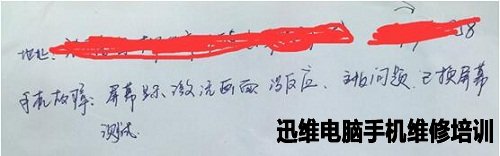 地址:
58
手机故障: 屏幕显示激活画面 没反应、主板问题. 已换屏幕
测试.
迅维电脑手机维修培训